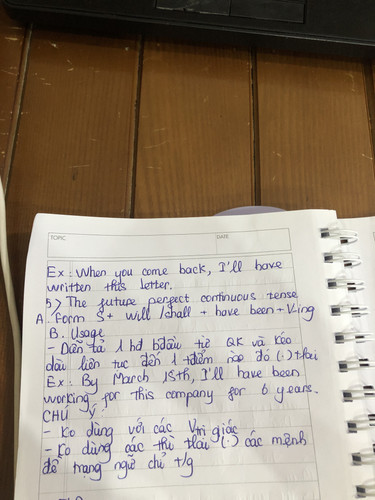 TOPIC
DATE
Ex: When you come back, I'll have
written this letter.
5> The future perfect continuous tense
A. Form S + will / shall + have been + V-ing
B. Usage
- Diễn tả 1 hđ bđầu từ QK và kéo
dài liên tục đến 1 điểm nào đó (.) tlai
Ex: By March 15th, I'll have been
working for this company for 6 years.
CHÚ Ý:
- Ko dùng với các V tri giác
- Ko dùng các thì tlai (.) các mệnh
đề trạng ngữ chỉ t/g